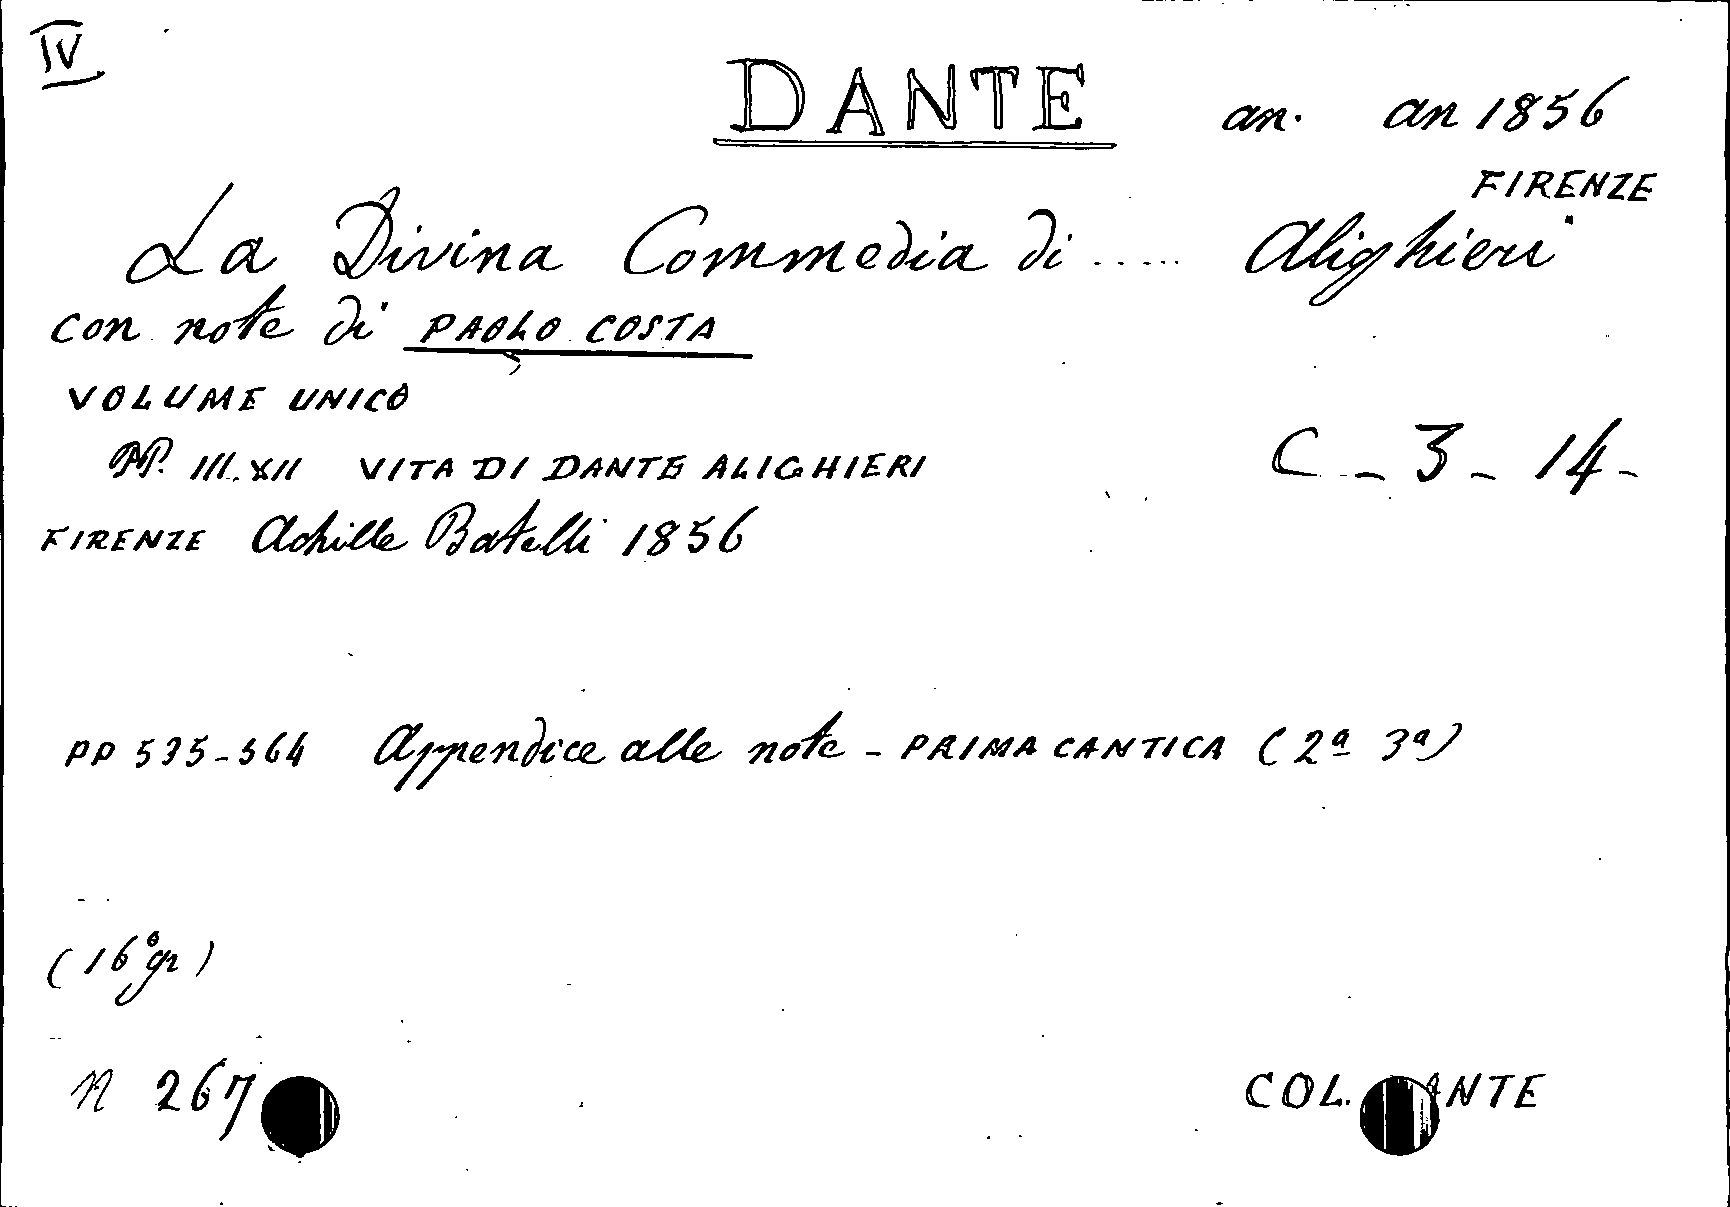 IV
DANTE an. an 1856
FIRENZE
La Divina Commedia di ..... Alighieri
con note di PAOLO COSTA
VOLUME UNICO
PP. III.XII VITA DI DANTE ALIGHIERI
C - 3 - 14 -
FIRENZE Achille Batelli 1856
PP 535-564 Appendice alle note - PRIMA CANTICA (2ª 3ª)
(16° gr)
N 267
COL. ANTE